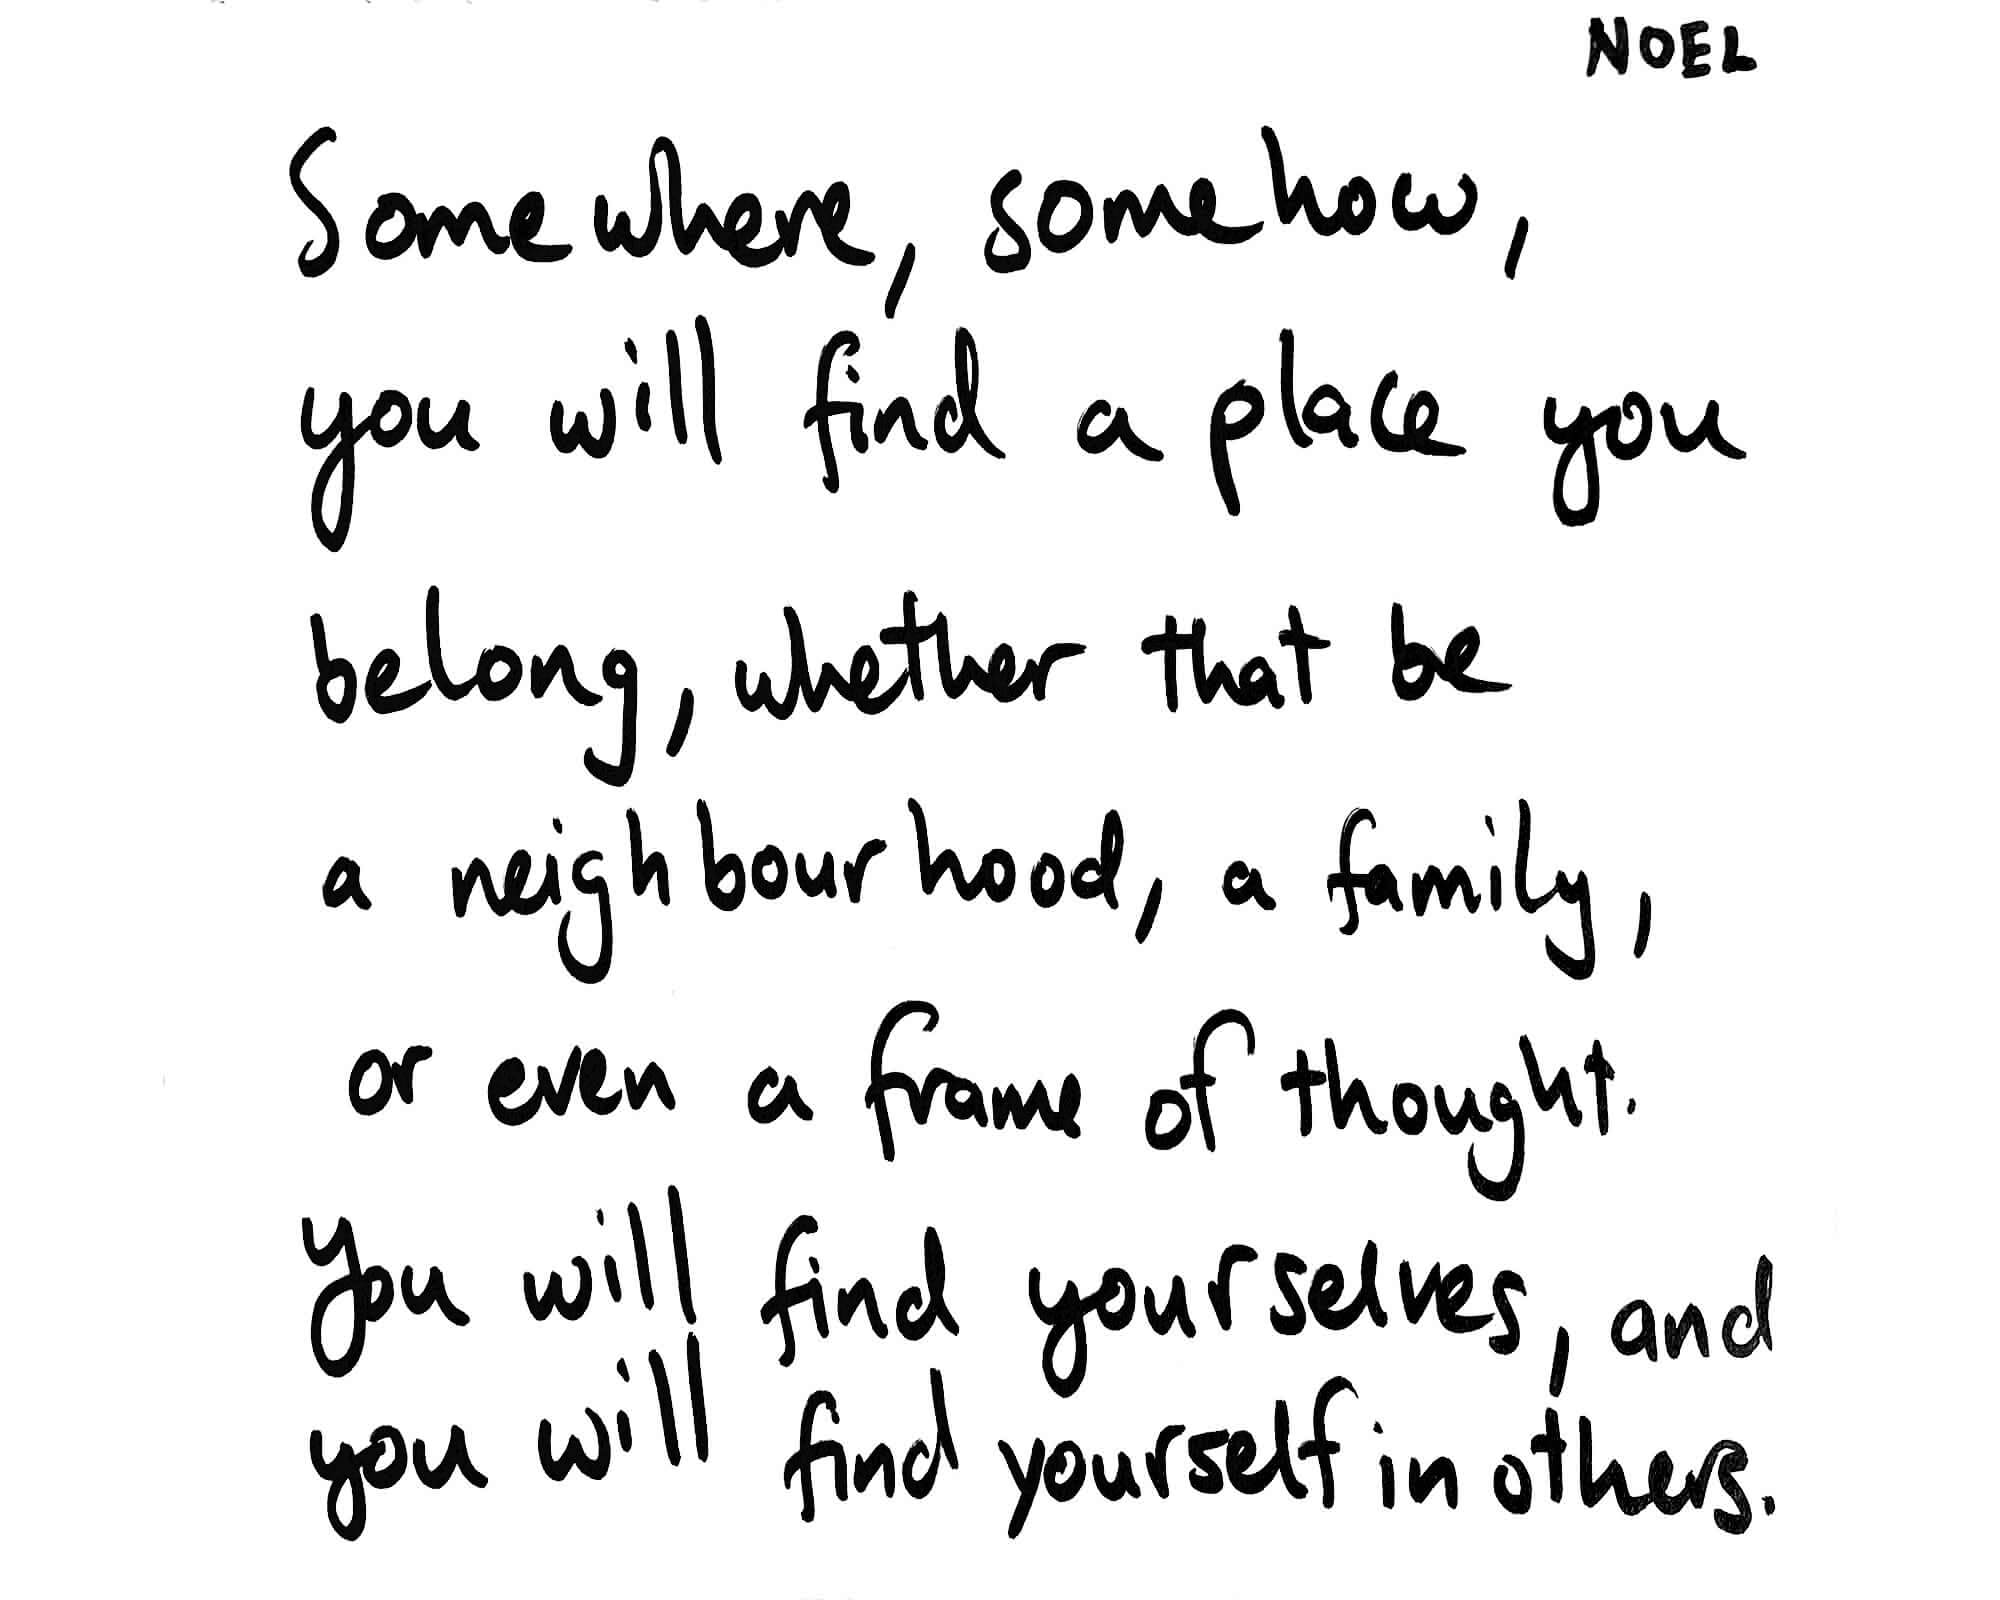 NOEL
Somewhere, somehow,
you will find a place you
belong, whether that be
a neighbourhood, a family,
or even a frame of thought.
You will find yourselves, and
you will find yourself in others.